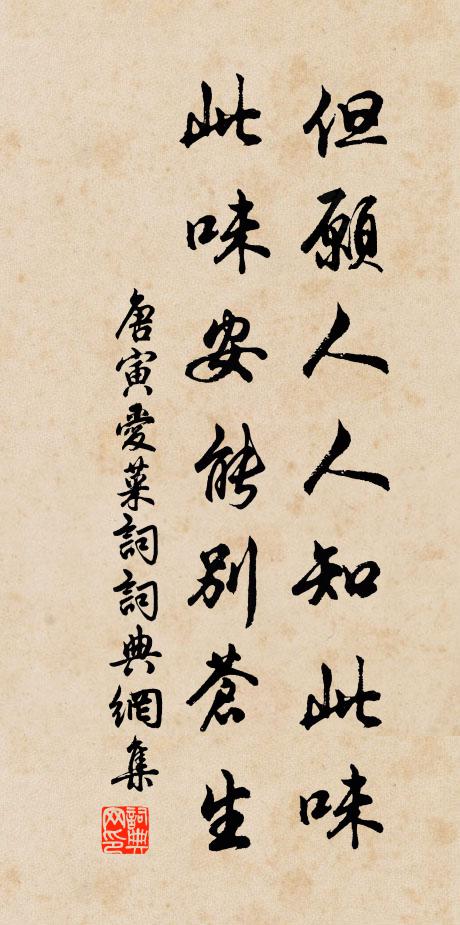 但願人人知此味
此味安能別蒼生
唐寅愛菜詞詞典網集
詞典網印